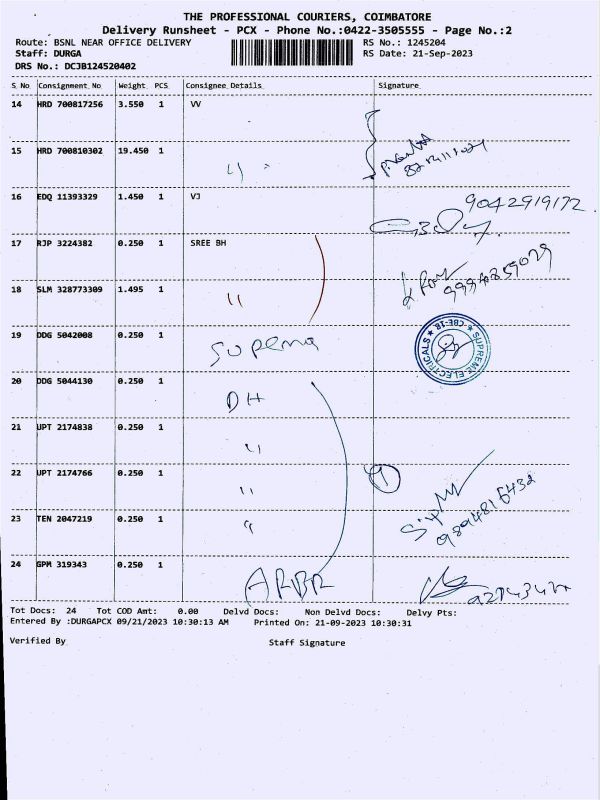 THE PROFESSIONAL COURIERS, COIMBATORE
Delivery Runsheet - PCX - Phone No.:0422-3505555 - Page No.:2
Route: BSNL NEAR OFFICE DELIVERY RS No.: 1245204
Staff: DURGA RS Date: 21-Sep-2023
DRS No.: DCJB124520402
S No Consignment No Weight PCS Consignee Details Signature
14 HRD 700817256 3.550 1 VV
15 HRD 700810302 19.450 1 "
16 EDQ 11393329 1.450 1 VJ 9042919172
17 RJP 3224382 0.250 1 SREE BH
18 SLM 328773309 1.495 1 "
19 DDG 5042008 0.250 1 SUPEMA SUPREME ELECTRICALS CBE-18
20 DDG 5044130 0.250 1 DH
21 UPT 2174838 0.250 1 "
22 UPT 2174766 0.250 1 "
23 TEN 2047219 0.250 1 " 9894816432
24 GPM 319343 0.250 1 ARBR
Tot Docs: 24 Tot COD Amt: 0.00 Delvd Docs: Non Delvd Docs: Delvy Pts:
Entered By :DURGAPCX 09/21/2023 10:30:13 AM Printed On: 21-09-2023 10:30:31
Verified By Staff Signature